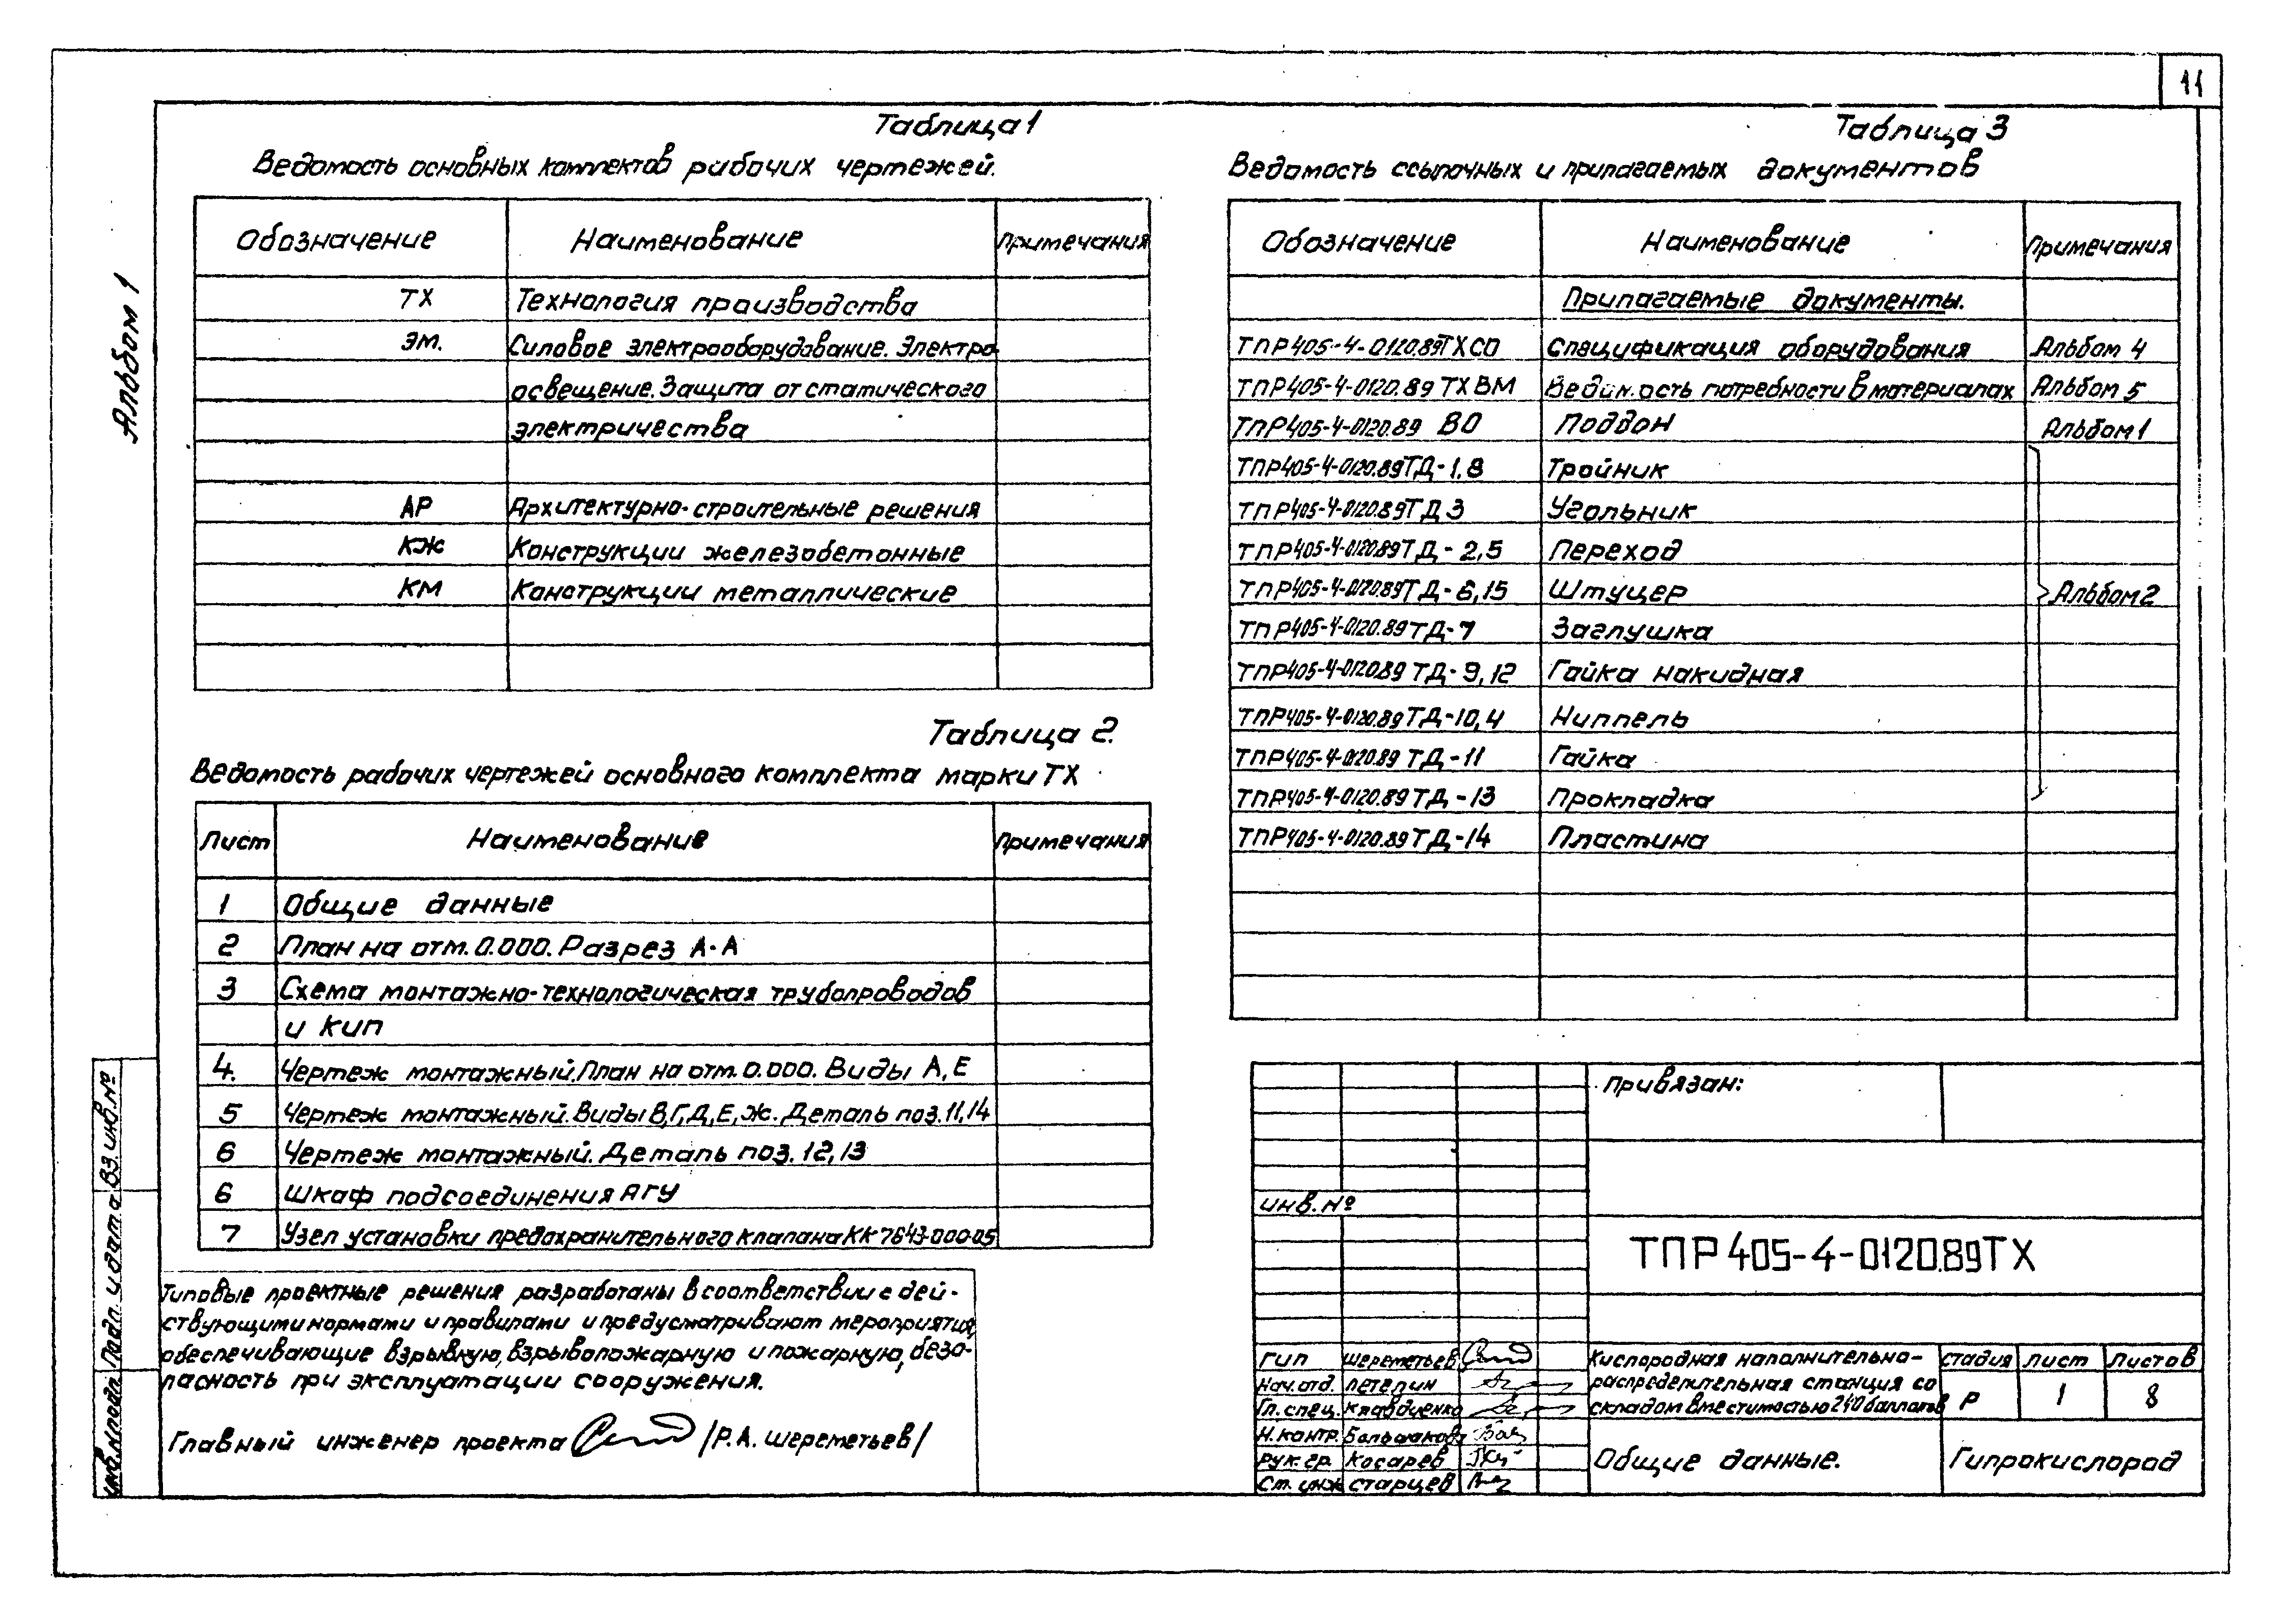 11
Альбом 1
Таблица 1
Ведомость основных комплектов рабочих чертежей.
Обозначение Наименование Примечания
ТХ Технология производства
ЭМ. Силовое электрооборудование. Электро
освещение. Защита от статического
электричества
АР Архитектурно-строительные решения
КЖ Конструкции железобетонные
КМ Конструкции металлические
Таблица 2.
Ведомость рабочих чертежей основного комплекта марки ТХ
Лист Наименование Примечания
1 Общие данные
2 План на отм. 0.000. Разрез А-А
3 Схема монтажно-технологическая трубопроводов
и КИП
4. Чертеж монтажный. План на отм. 0.000. Виды А, Е
5 Чертеж монтажный. Виды В, Г, Д, Е, Ж. Деталь поз. 11, 14
6 Чертеж монтажный. Деталь поз. 12, 13
6 Шкаф подсоединения АГУ
7 Узел установки предохранительного клапана КК 7643-000-05
Типовые проектные решения разработаны в соответствии с дей-
ствующими нормами и правилами и предусматривают мероприятия,
обеспечивающие взрывную, взрывопожарную и пожарную, безо-
пасность при эксплуатации сооружения.
Главный инженер проекта /Р.А. Шереметьев/
Таблица 3
Ведомость ссылочных и прилагаемых документов
Обозначение Наименование Примечания
Прилагаемые документы.
ТПР 405-4-0120.89ТХСО Спецификация оборудования Альбом 4
ТПР 405-4-0120.89 ТХВМ Ведомость потребности в материалах Альбом 5
ТПР 405-4-0120.89 ВО Поддон Альбом 1
ТПР 405-4-0120.89ТД-1,8 Тройник
ТПР 405-4-0120.89ТД 3 Угольник
ТПР 405-4-0120.89ТД-2,5 Переход
ТПР 405-4-0120.89ТД-6,15 Штуцер Альбом 2
ТПР 405-4-0120.89 ТД-7 Заглушка
ТПР 405-4-0120.89 ТД-9,12 Гайка накидная
ТПР 405-4-0120.89 ТД-10,4 Ниппель
ТПР 405-4-0120.89 ТД-11 Гайка
ТПР 405-4-0120.89 ТД-13 Прокладка
ТПР 405-4-0120.89 ТД-14 Пластина
Привязан:
инв. №
ТПР 405-4-0120.89ТХ
ГИП Шереметьев
Нач. отд. Летепин
Гл. спец. Клавдиенко
Н. контр. Большакова
Рук. гр. Косарев
Ст. инж Старцев
Кислородная наполнительно-
распределительная станция со
складом вместимостью 240 баллонов
Стадия Лист Листов
Р 1 8
Общие данные.
Гипрокислород
Вз. инв №
Подп. и дата
Инв. № подл.